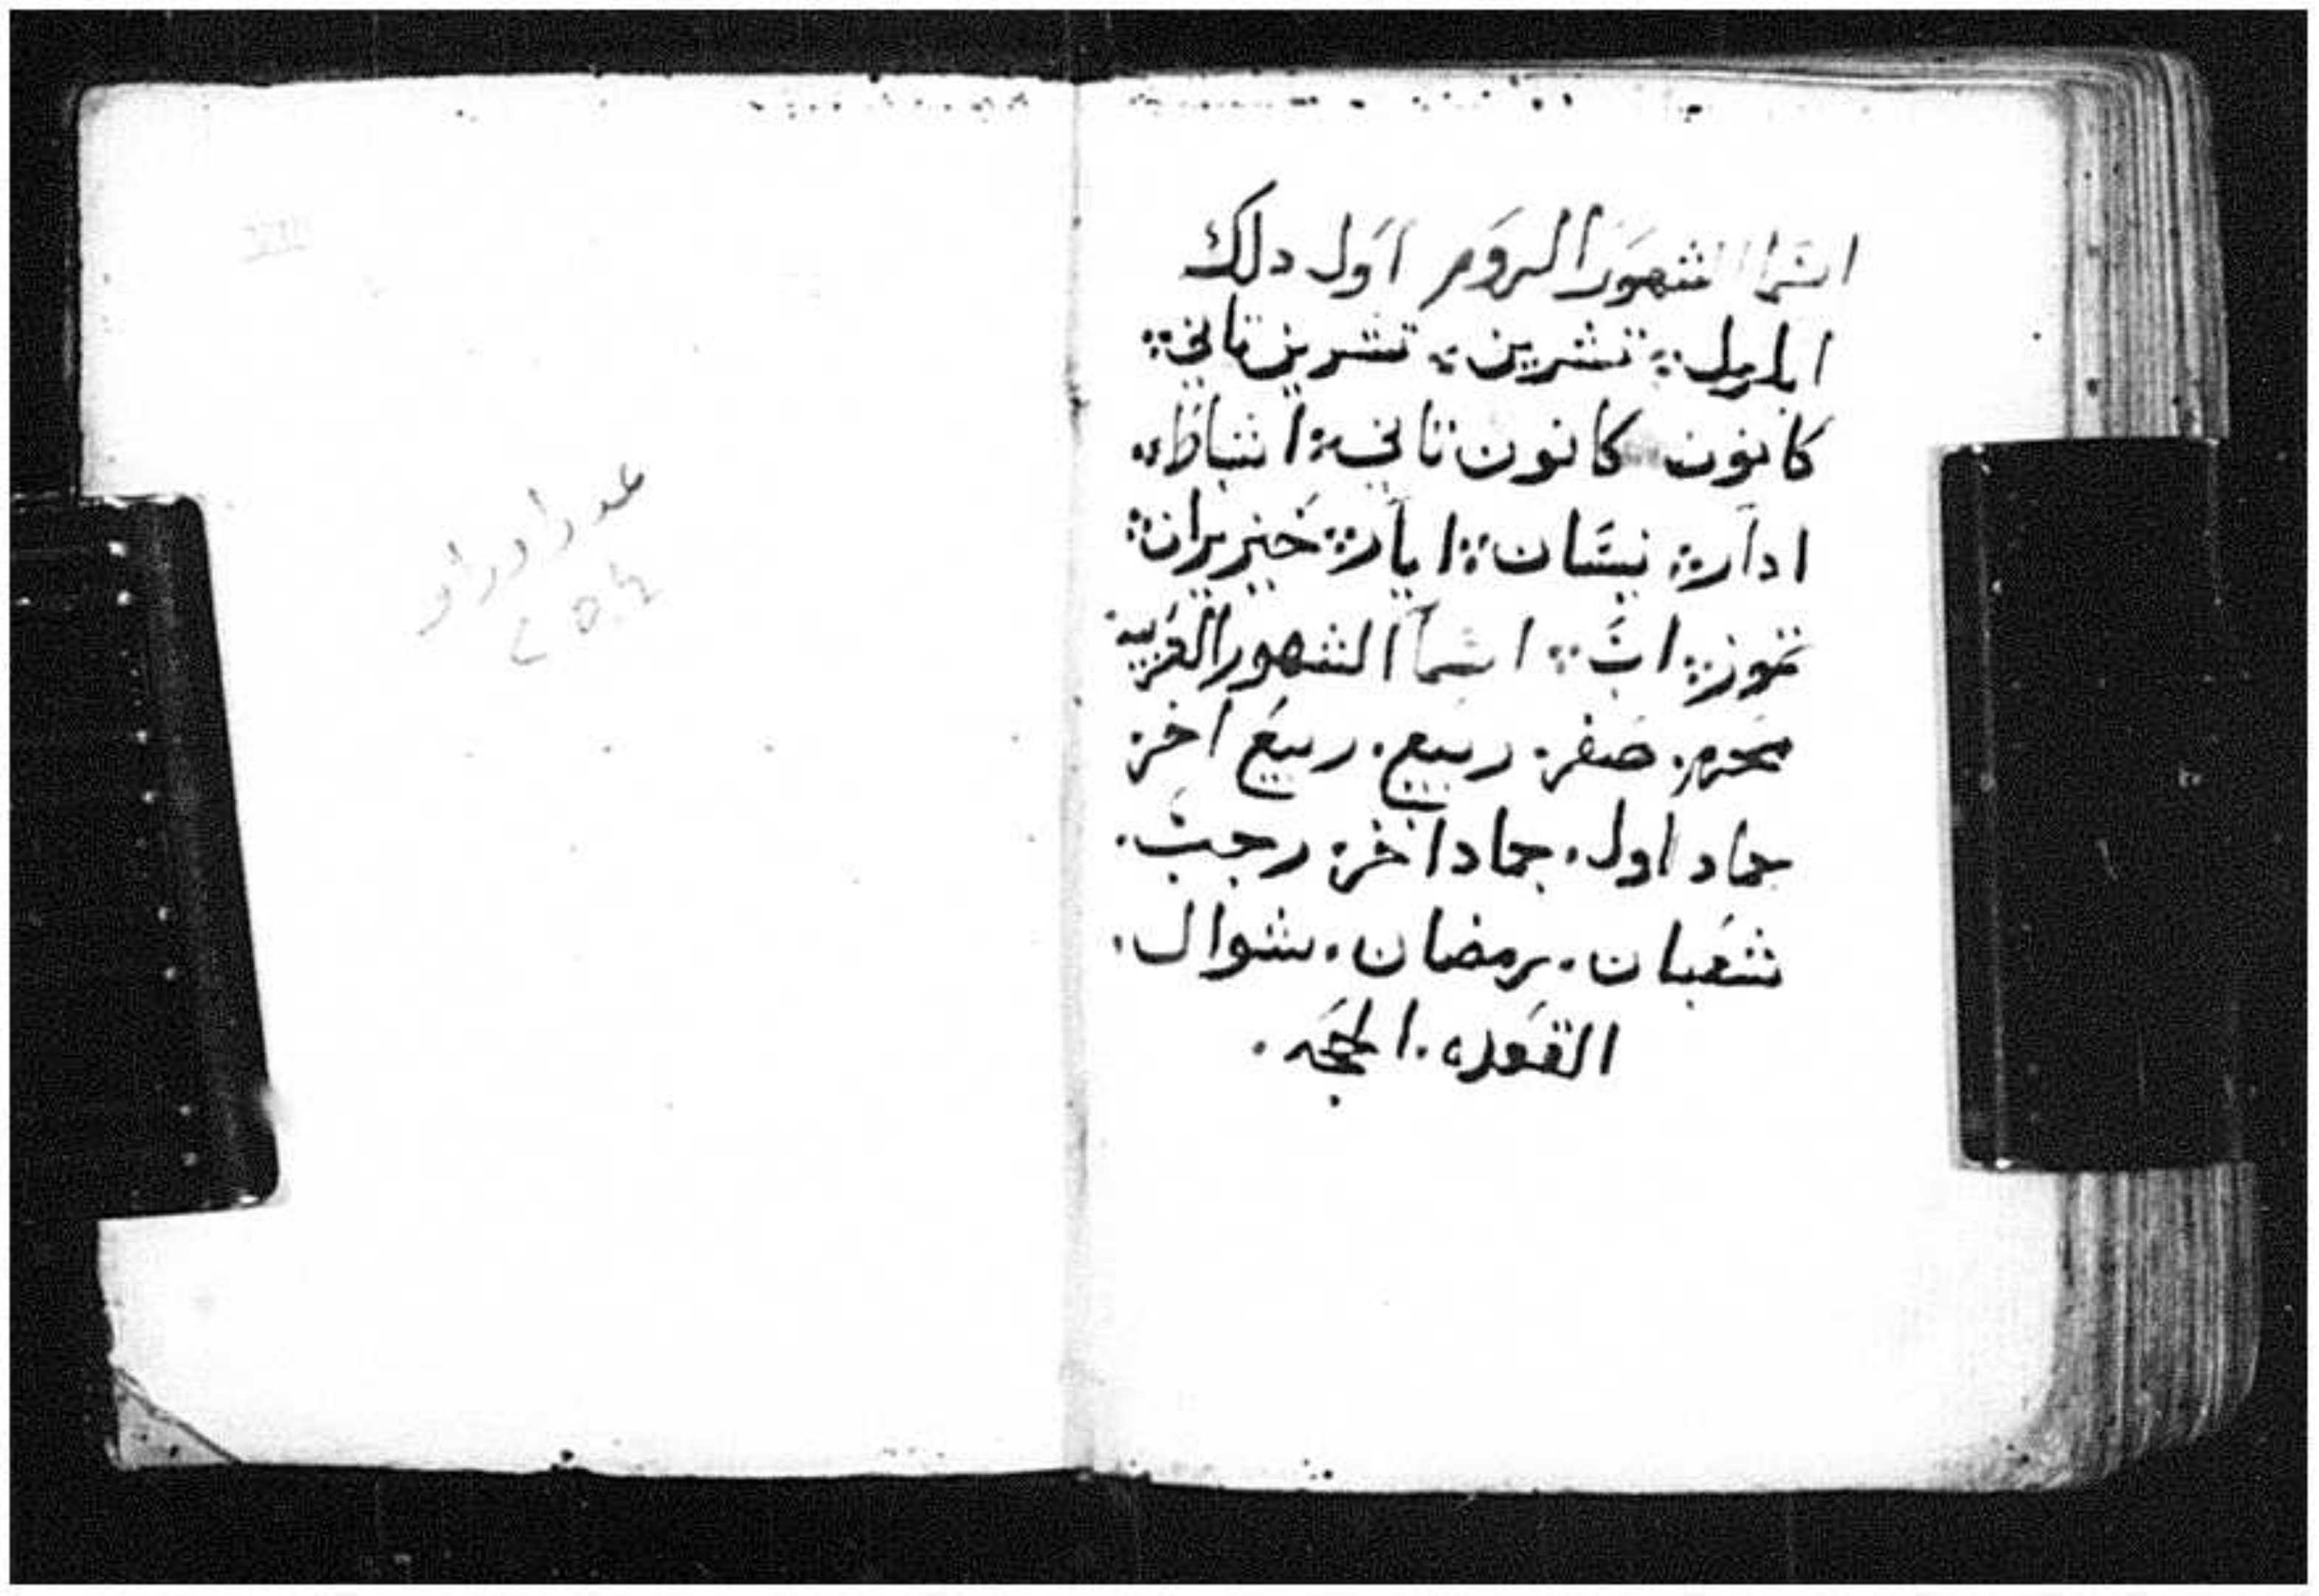 اسما شهور الروم اول دلك
ايلول تشرين تشرين تاني
كانون كانون تاني اشباط
ادار نيسان ايار خزيران
تموز اب اسما الشهور العربيه
محرم. صفر. ربيع. ربيع اخر.
جماد اول. جماد اخر. رجب.
شعبان. رمضان. شوال.
القعده. الحجه.
VIII